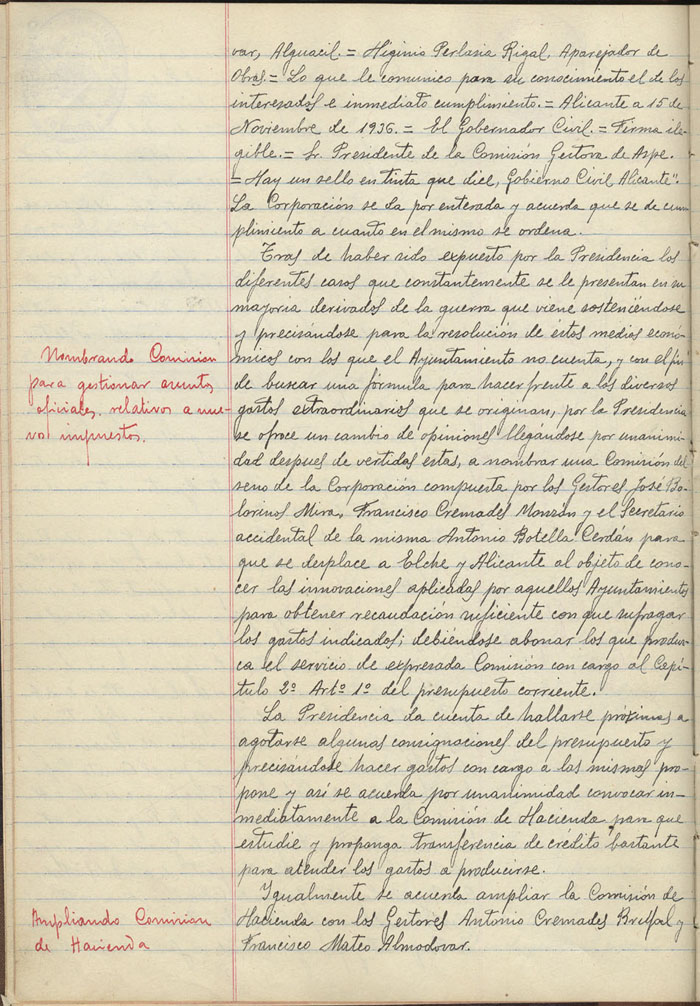 var, Alguacil.= Higinio Perlasia Rigal, Aparejador de
Obras.= Lo que le comunico para su conocimiento el de los
interesados e inmediato cumplimiento.= Alicante a 15 de
Noviembre de 1936.= El Gobernador Civil.= Firma ile-
gible.= Sr. Presidente de la Comisión Gestora de Aspe.
=Hay un sello en tinta que dice, Gobierno Civil Alicante".
La Corporación se da por enterada y acuerda que se de cum
plimiento a cuanto en el mismo se ordena.
Tras de haber sido expuesto por la Presidencia los
diferentes casos que constantemente se le presentan en su
mayoria derivados de la guerra que viene sosteniéndose
y precisándose para la resolución de éstos medios econó-
micos con los que el Ayuntamiento no cuenta, y con el fin
de buscar una fórmula para hacer frente a los diversos
gastos extraordinarios que se originan, por la Presidencia
se ofrece un cambio de opiniones llegándose por unanimi-
dad despues de vertidas estas, a nombrar una Comisión del
seno de la Corporación compuesta por los Gestores José Bo-
lorinos Mira, Francisco Cremades Monzón y el Secretario
accidental de la misma Antonio Botella Cerdán para
que se desplace a Elche y Alicante al objeto de cono-
cer las innovaciones aplicadas por aquellos Ayuntamientos
para obtener recaudación suficiente con que sufragar
los gastos indicados; debiéndose abonar los que produz-
ca el servicio de expresada Comisión con cargo al Capí-
tulo 2º Artº 1º del presupuesto corriente.
Nombrando Comision
para gestionar asuntos
oficiales relativos a nue-
vos impuestos.
La Presidencia da cuenta de hallarse próximas a
agotarse algunas consignaciones del presupuesto y
precisándose hacer gastos con cargo a las mismas pro-
pone y así se acuerda por unanimidad convocar in-
mediatamente a la Comisión de Hacienda para que
estudie y proponga transferencia de crédito bastante
para atender los gastos a producirse.
Igualmente se acuerda ampliar la Comisión de
Hacienda con los Gestores Antonio Cremades y
Francisco Mateo Almodovar.
Ampliando Comision
de Hacienda